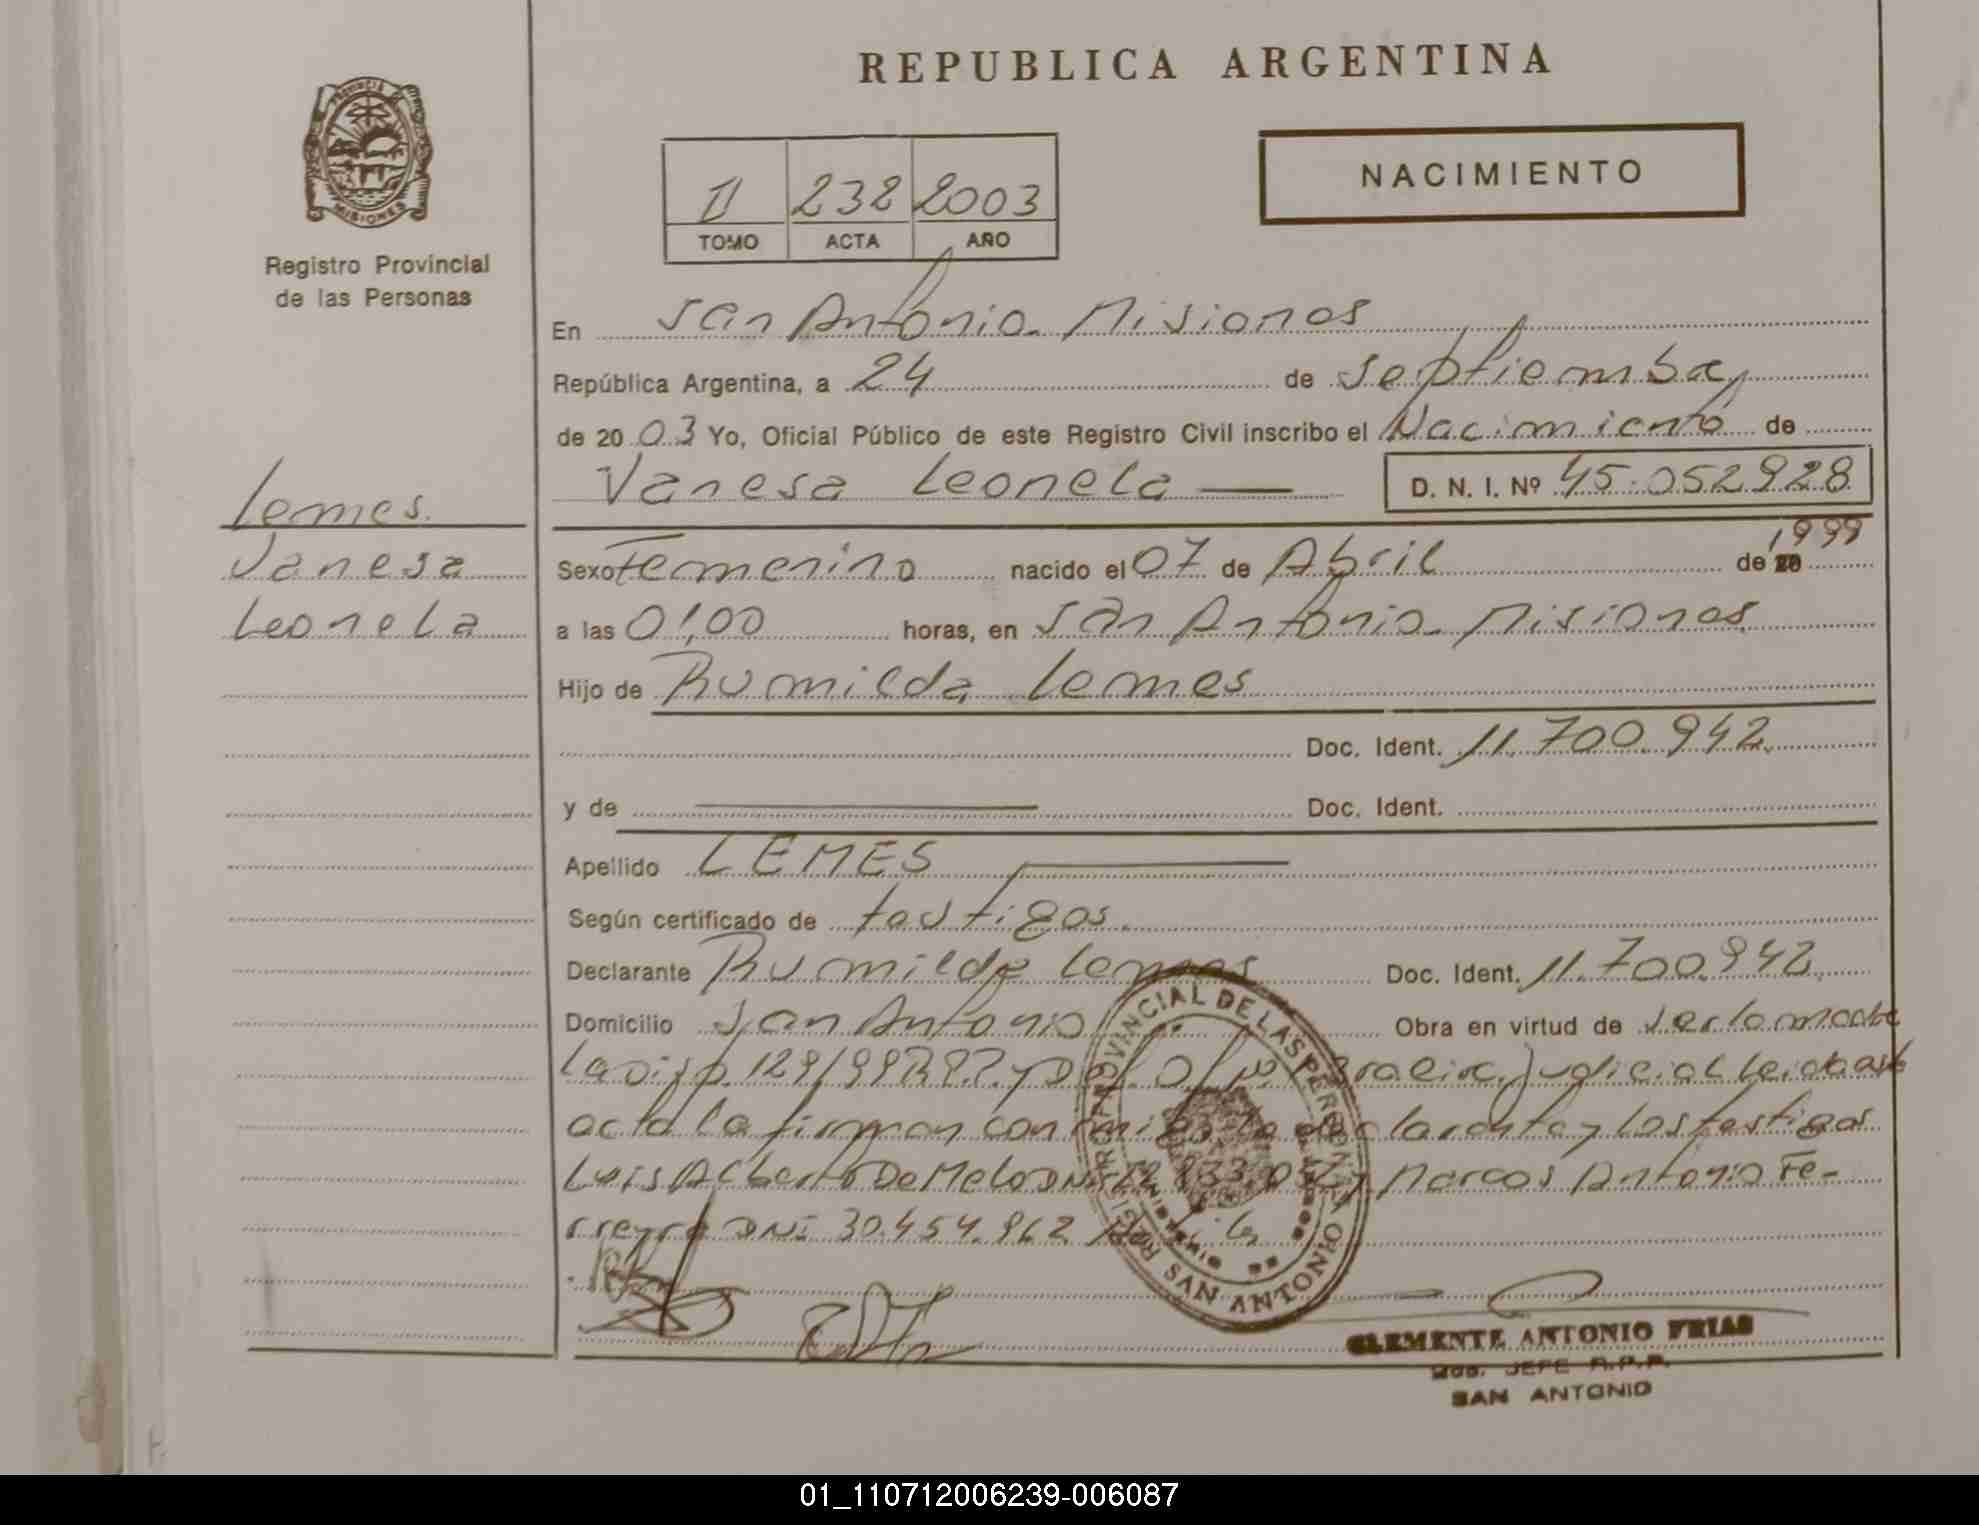 REPUBLICA ARGENTINA
PROVINCIA DE
MISIONES
Registro Provincial
de las Personas
NACIMIENTO
II 232 2003
TOMO ACTA AÑO
En San Antonio. Misiones
República Argentina, a 24 de septiembre
de 20 03 Yo, Oficial Público de este Registro Civil inscribo el Nacimiento de
Vanesa Leonela D. N. I. Nº 45.052.928
Lemes.
Vanesa
Leonela
Sexo Femenino nacido el 07 de Abril de 1999
a las 01,00 horas, en San Antonio. Misiones
Hijo de Rumilda Lemes
Doc. Ident. 11.700.942.
y de Doc. Ident.
Apellido LEMES
Según certificado de testigos.
Declarante Rumilda Lemes Doc. Ident. 11.700.942.
Domicilio San Antonio Obra en virtud de
Judicial Leida
acta la firman con declarante y los testigos
Luis Alberto De Melo DNI y Marcos Antonio Fe-
rreyra DNI 30.454.962
REGISTRO PROVINCIAL DE LAS PERSONAS
SAN ANTONIO
CLEMENTE ANTONIO FRIAS
JEFE R.P.P.
SAN ANTONIO
01_110712006239-006087